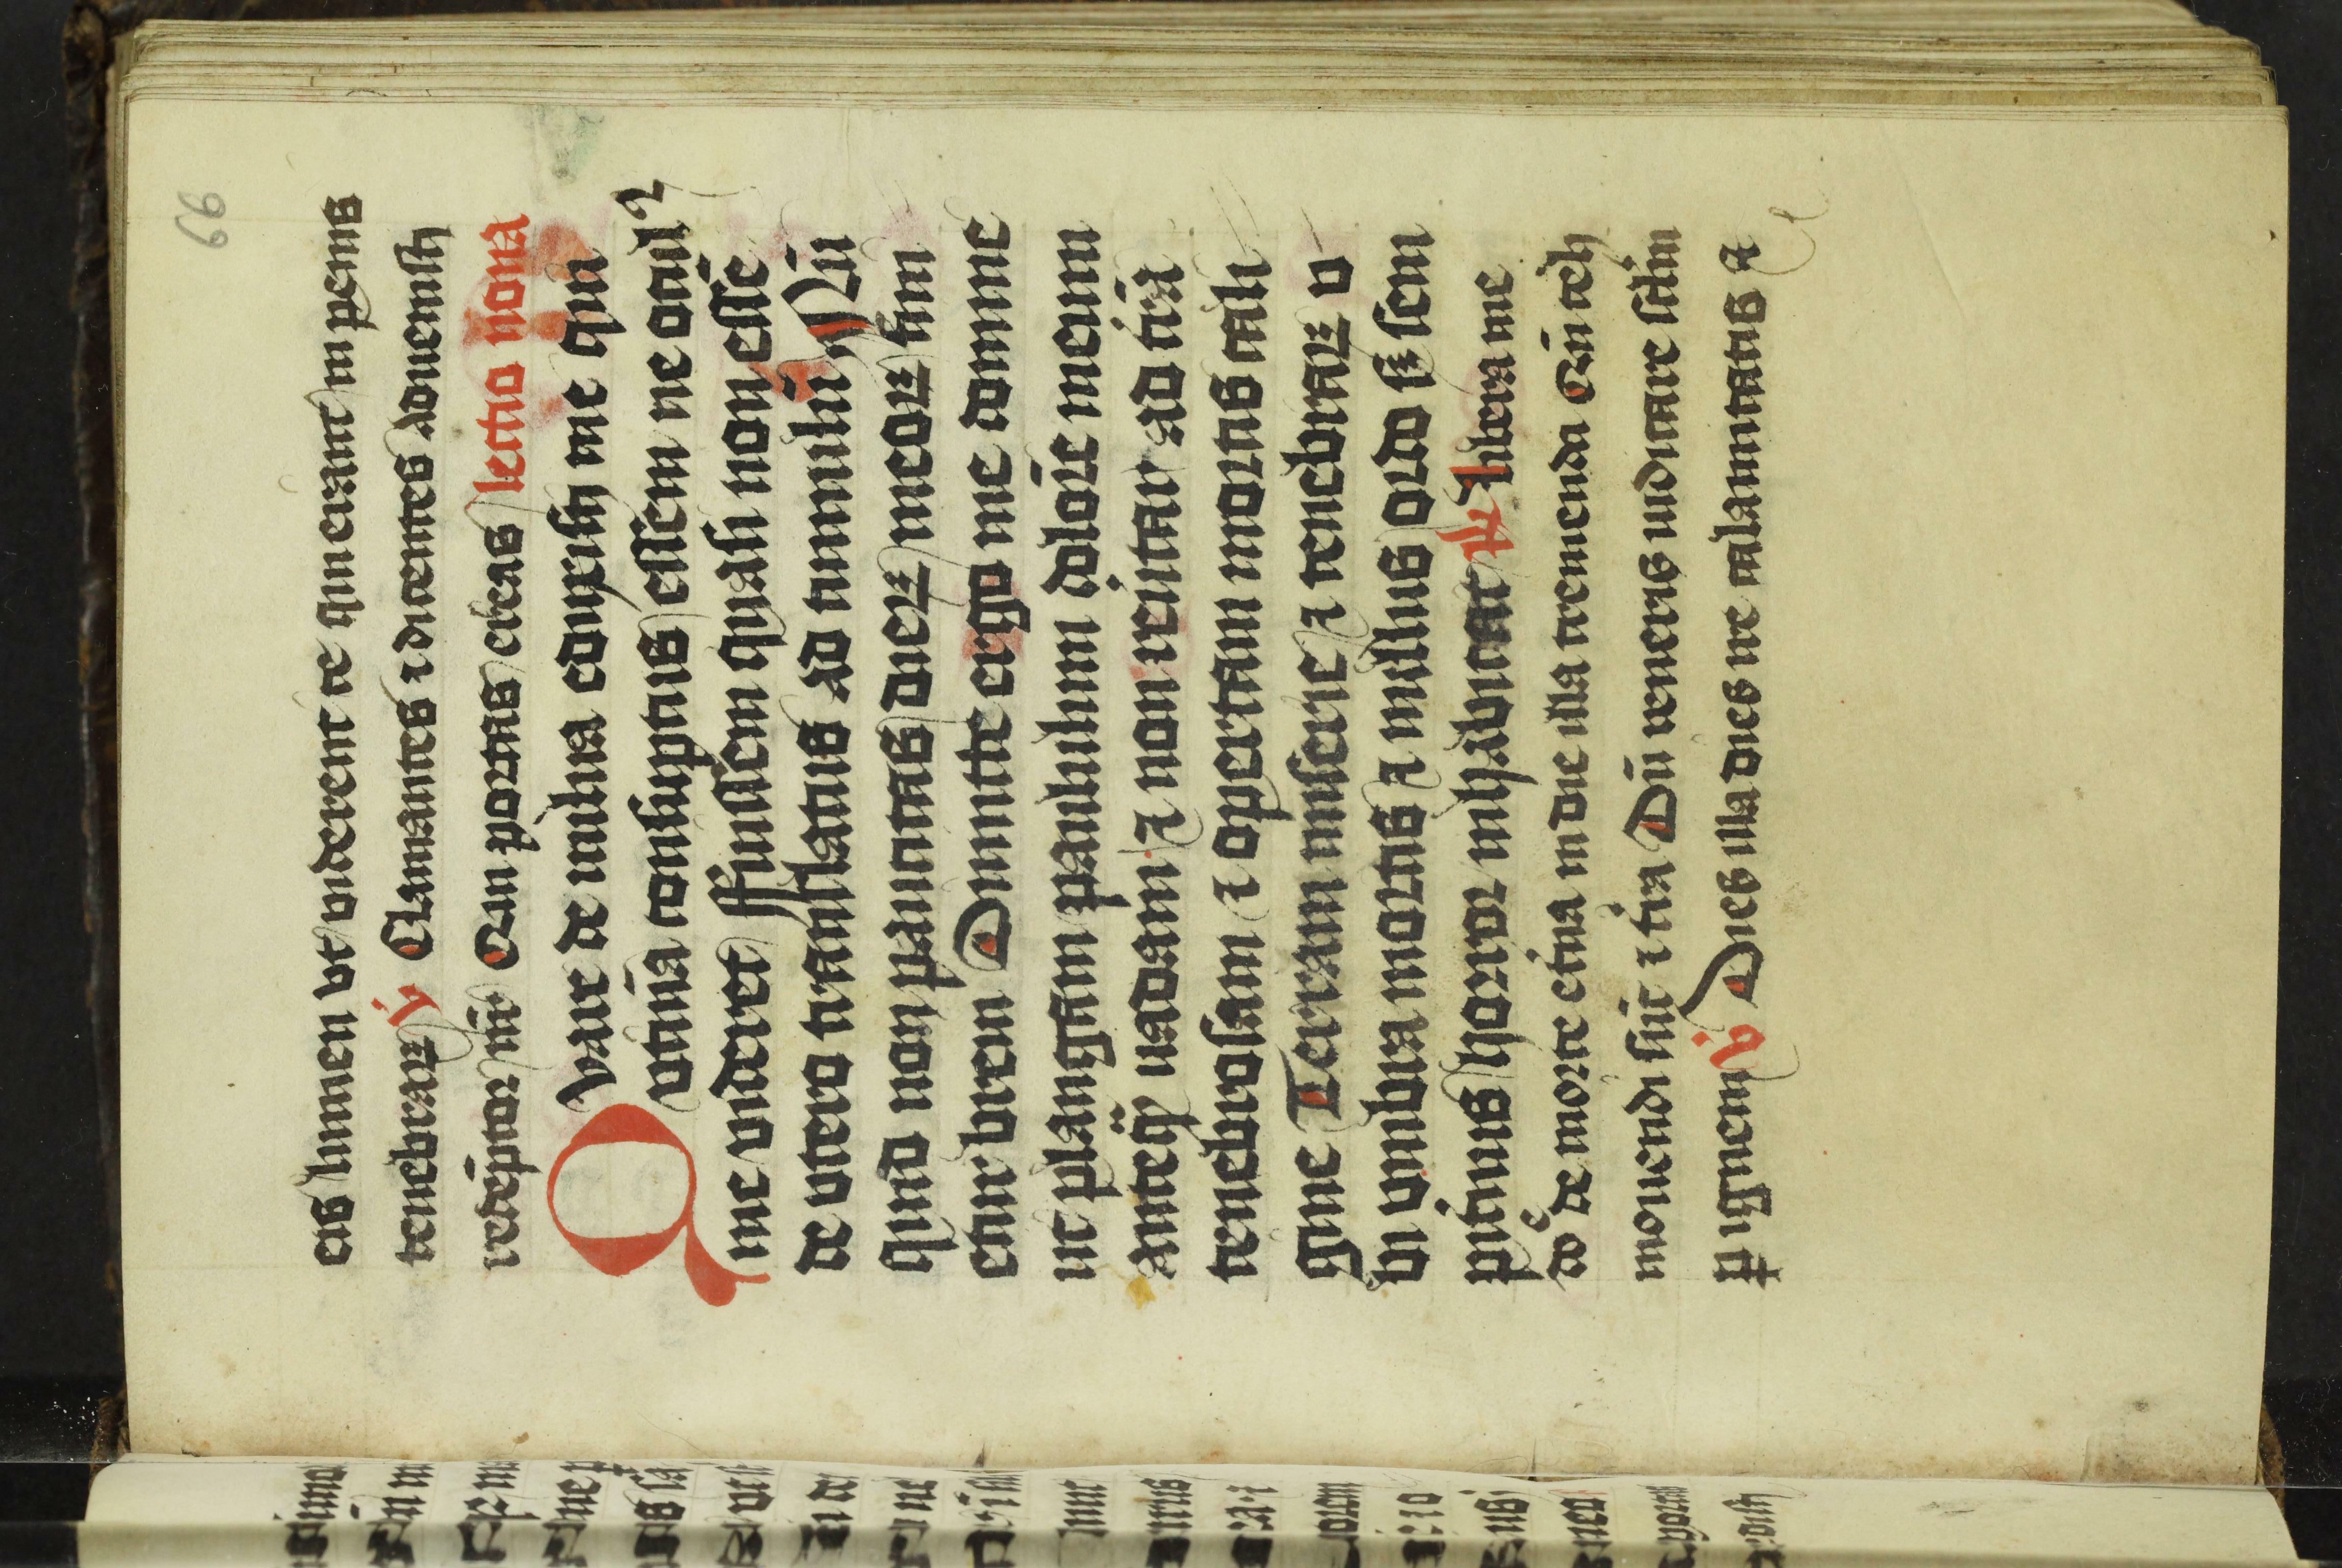 66
eis lumen vt viderent te qui erant in penis
tenebrarꝝ ℣ Clamantes ⁊ dicentes aduenisti
redēptor nr̄ Qui portas ereas lectio nona
Quare de uulua eduxisti me qui
vtinā consūptus essem ne ocul⁹
me videret ffuissem quasi non essē
de vtero translatus ad tumulū Nū
quid non paucitas dierꝝ meorꝝ fini
etur breui Dimitte ergo me domine
ut plangam paululum dolorē meum
anteq̄ uadam ⁊ non reūtar ad tr̄ā
tenebrosam ⁊ opertam mortis cali
gine Terram miserie ⁊ tenebrarꝝ v
bi vmbra mortis ⁊ nullus ordo sꝫ sem
pit̄nus horror inhabitat ℟ Libera me
dōe de morte et̄na in die illa tremenda Qn̄ celi
mouendi sūt ⁊ tr̄a Dū veneris iudicare sclm̄
ꝑ ignem ℣ Dies illa dies ire calamitatis ⁊